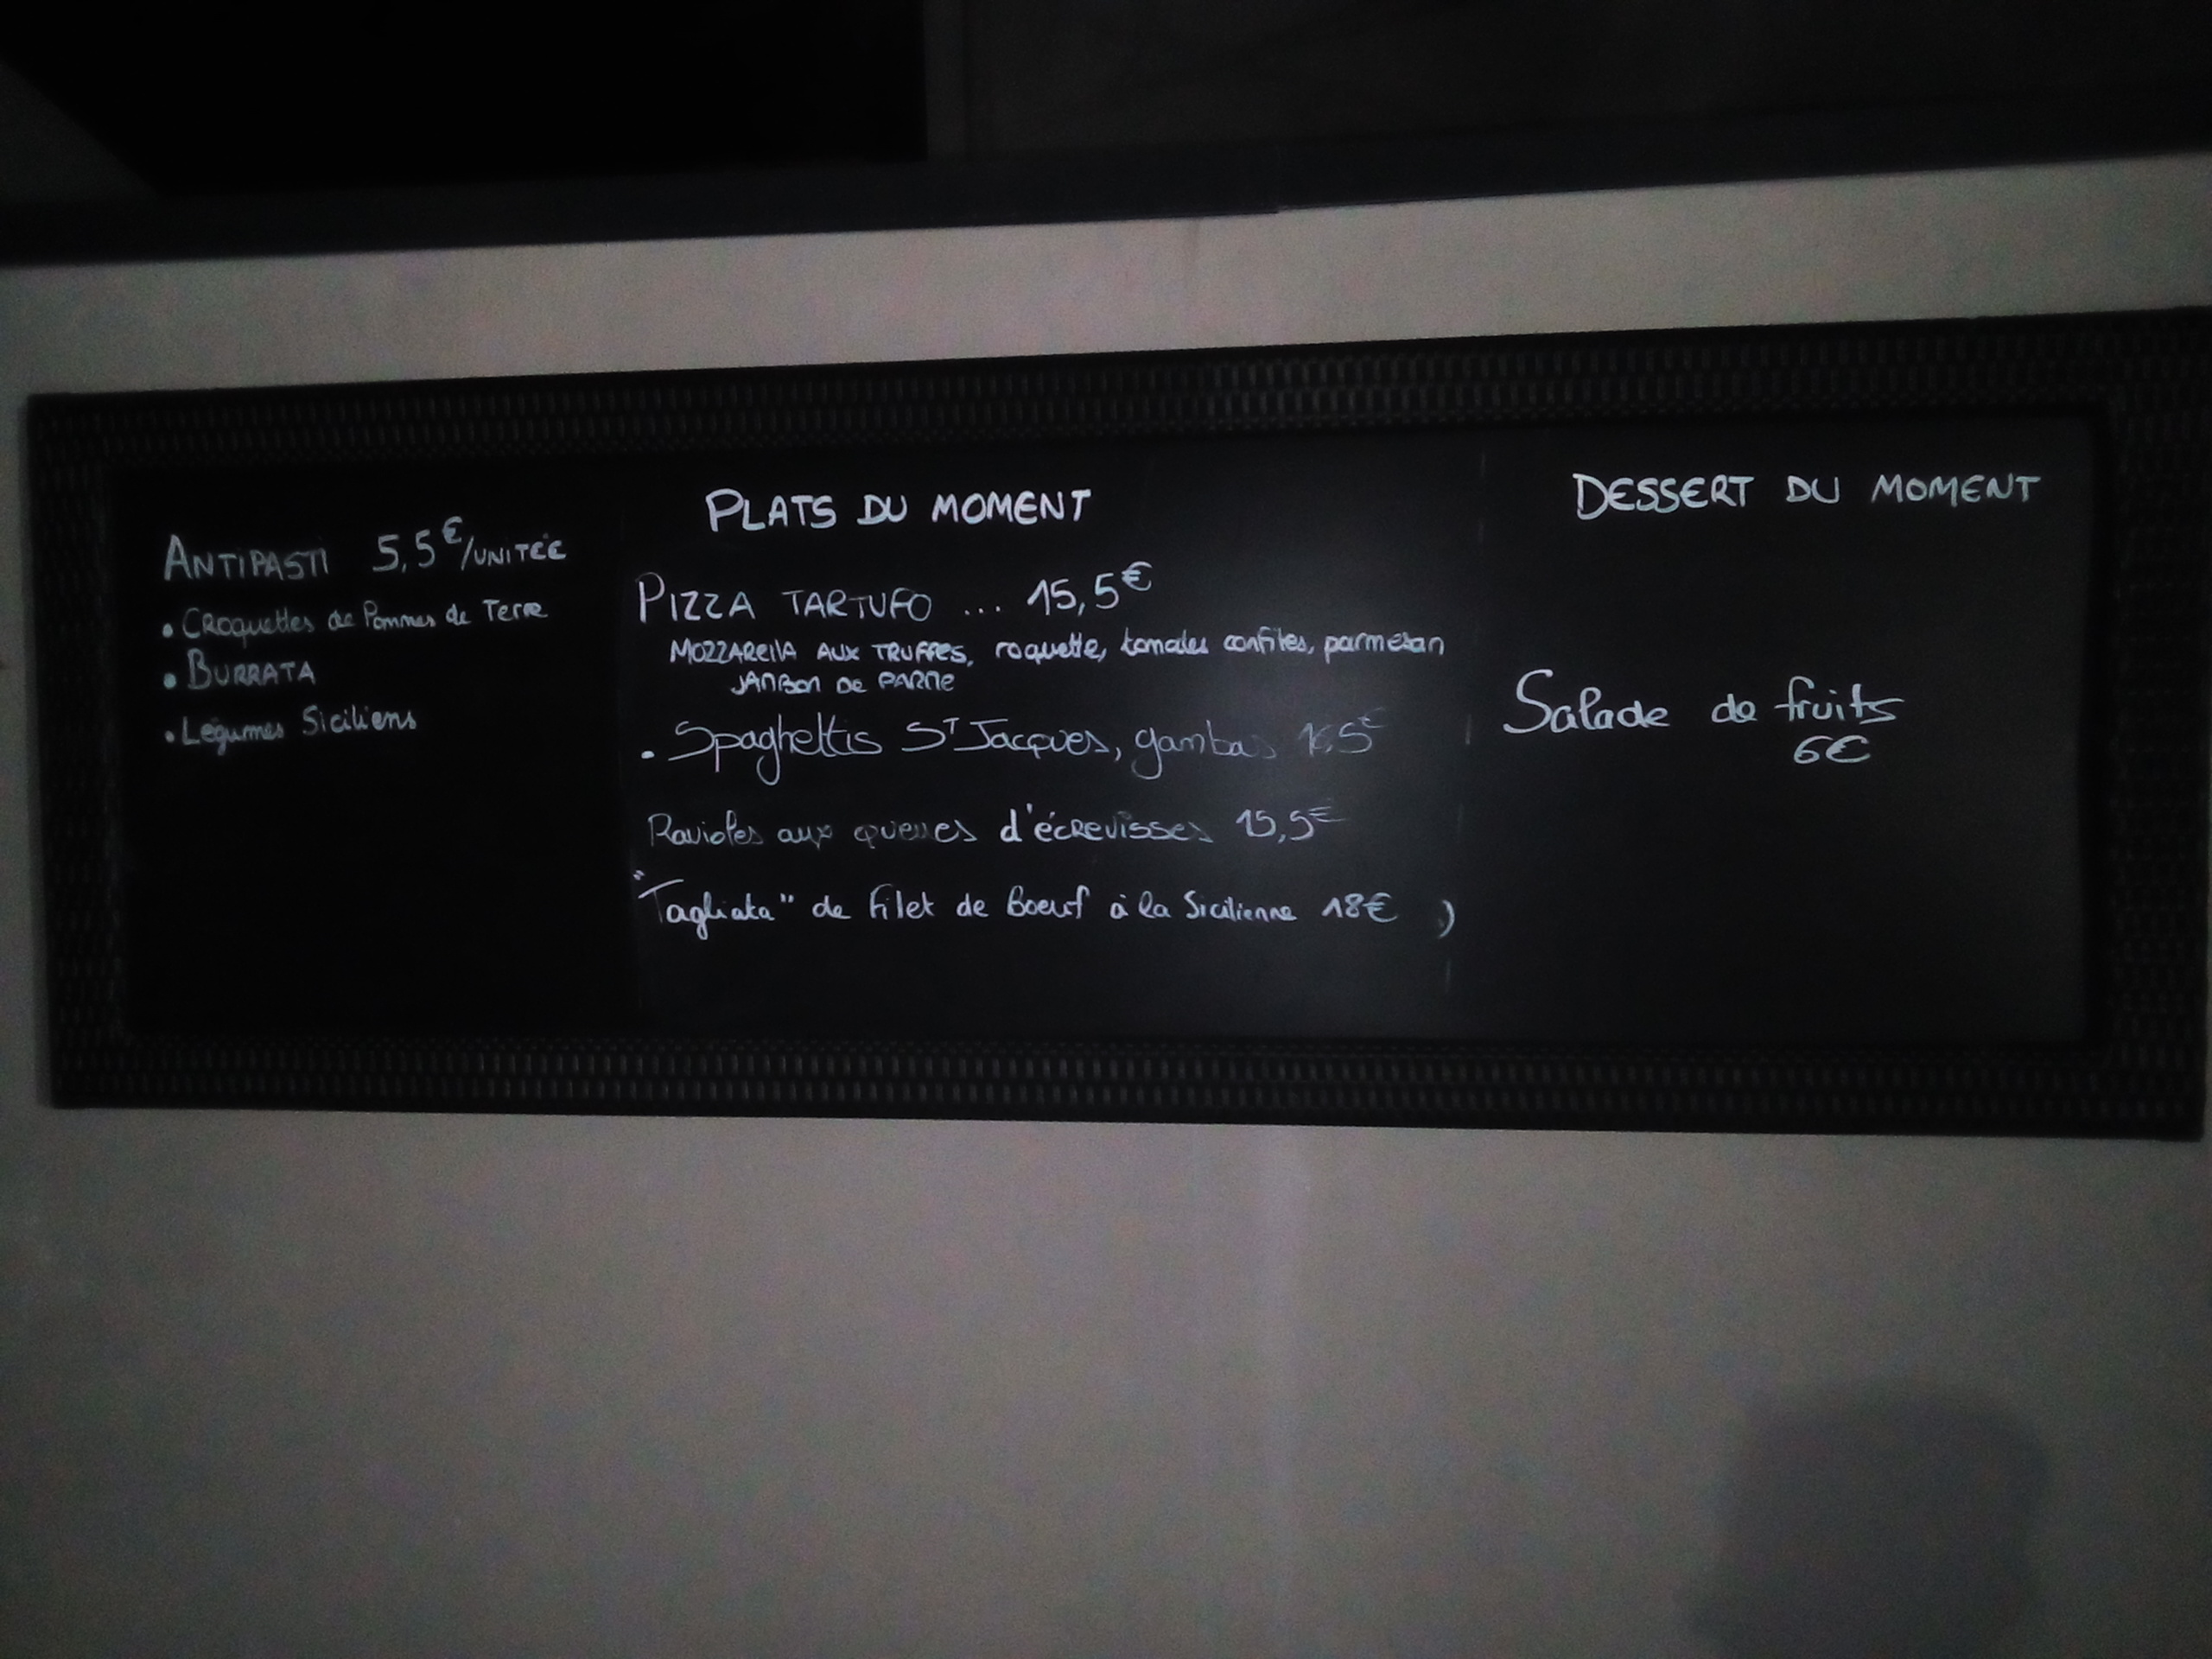 ANTIPASTI 5,5€/UNITÉE
• CROquettes de Pommes de Terre
• BURRATA
• Légumes Siciliens
PLATS DU MOMENT
PIZZA TARTUFO ... 15,5€
MOZZARELLA AUX TRUFFES, roquette, tomates confites, parmesan
JAMBON DE PARME
• Spaghettis ST Jacques, gambas
Ravioles aux queues d'écrevisses 15,5€
"Tagliata" de Filet de Boeuf à la Sicilienne 18€ )
DESSERT DU MOMENT
Salade de fruits
6€